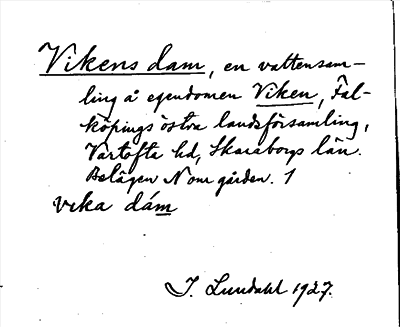 Vikens dam, en vattensam-
ling å egendomen Viken, Fal-
köpings östra landsförsamling,
Vartofta hd, Skaraborgs län.
Belägen N om gården. 1
vika dám
J. Lundahl 1927.